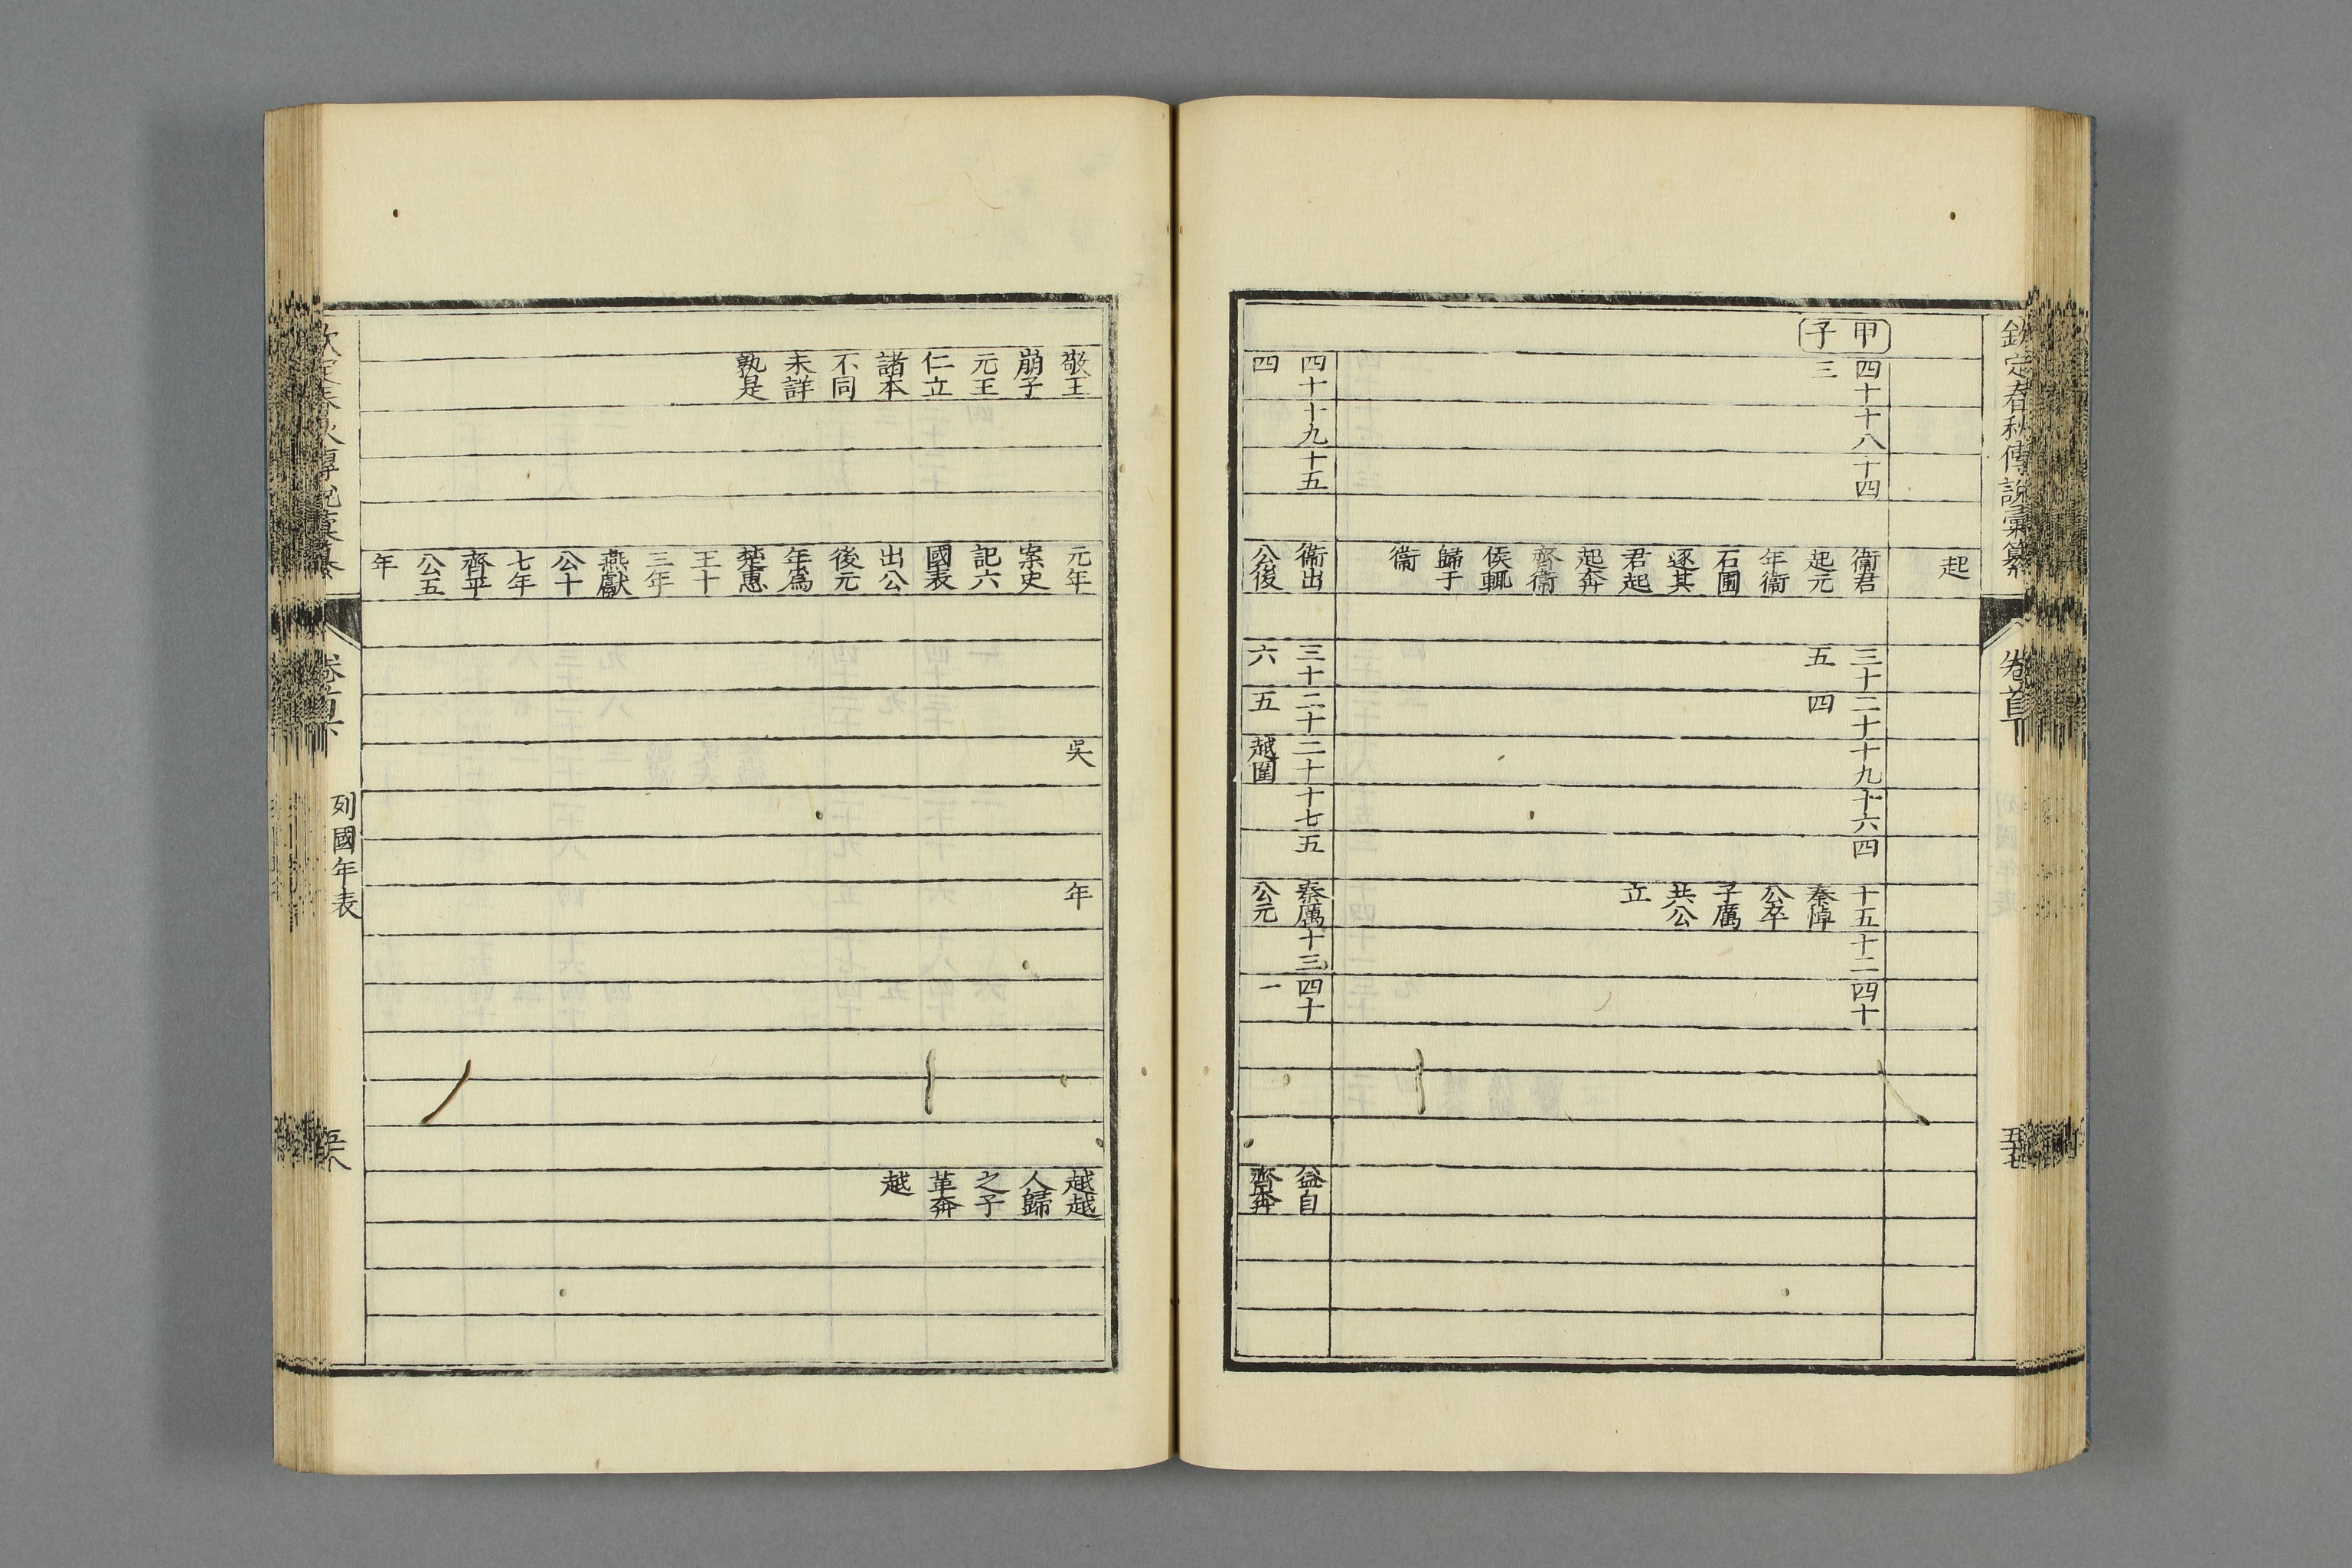 欽定春秋傳說彙纂
卷首下
起
甲子
四十三
十八
十四
衞君
起元
年衞
石圃
逐其
君起
起奔
齊衞
侯輒
歸于
衞
三十五
二十四
十九
十六
四
十五
秦悼
公卒
子厲
共公
立
十二
四十
四十四
十九
十五
衞出
公後
三十六
二十五
二十
越圍
十七
五
秦厲
公元
十三
四十一
益自
齊奔
敬王
崩子
元王
仁立
諸本
不同
未詳
孰是
元年
案史
記六
國表
出公
後元
年爲
楚惠
王十
三年
燕獻
公十
七年
齊平
公五
年
吳
年
越越
人歸
之子
革奔
越
列國年表